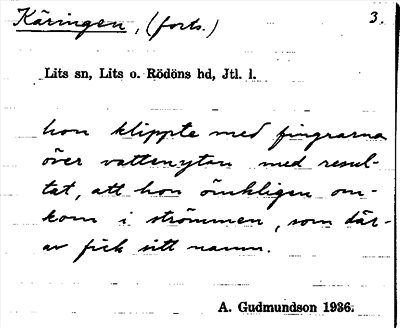 Käringen, (forts.) 3.
Lits sn, Lits o. Rödöns hd, Jtl. l.
hon klippte med fingrarna
över vattenytan med resul-
tat, att hon ömkligen om-
kom i strömmen, som där-
av fick sitt namn.
A. Gudmundson 1936.